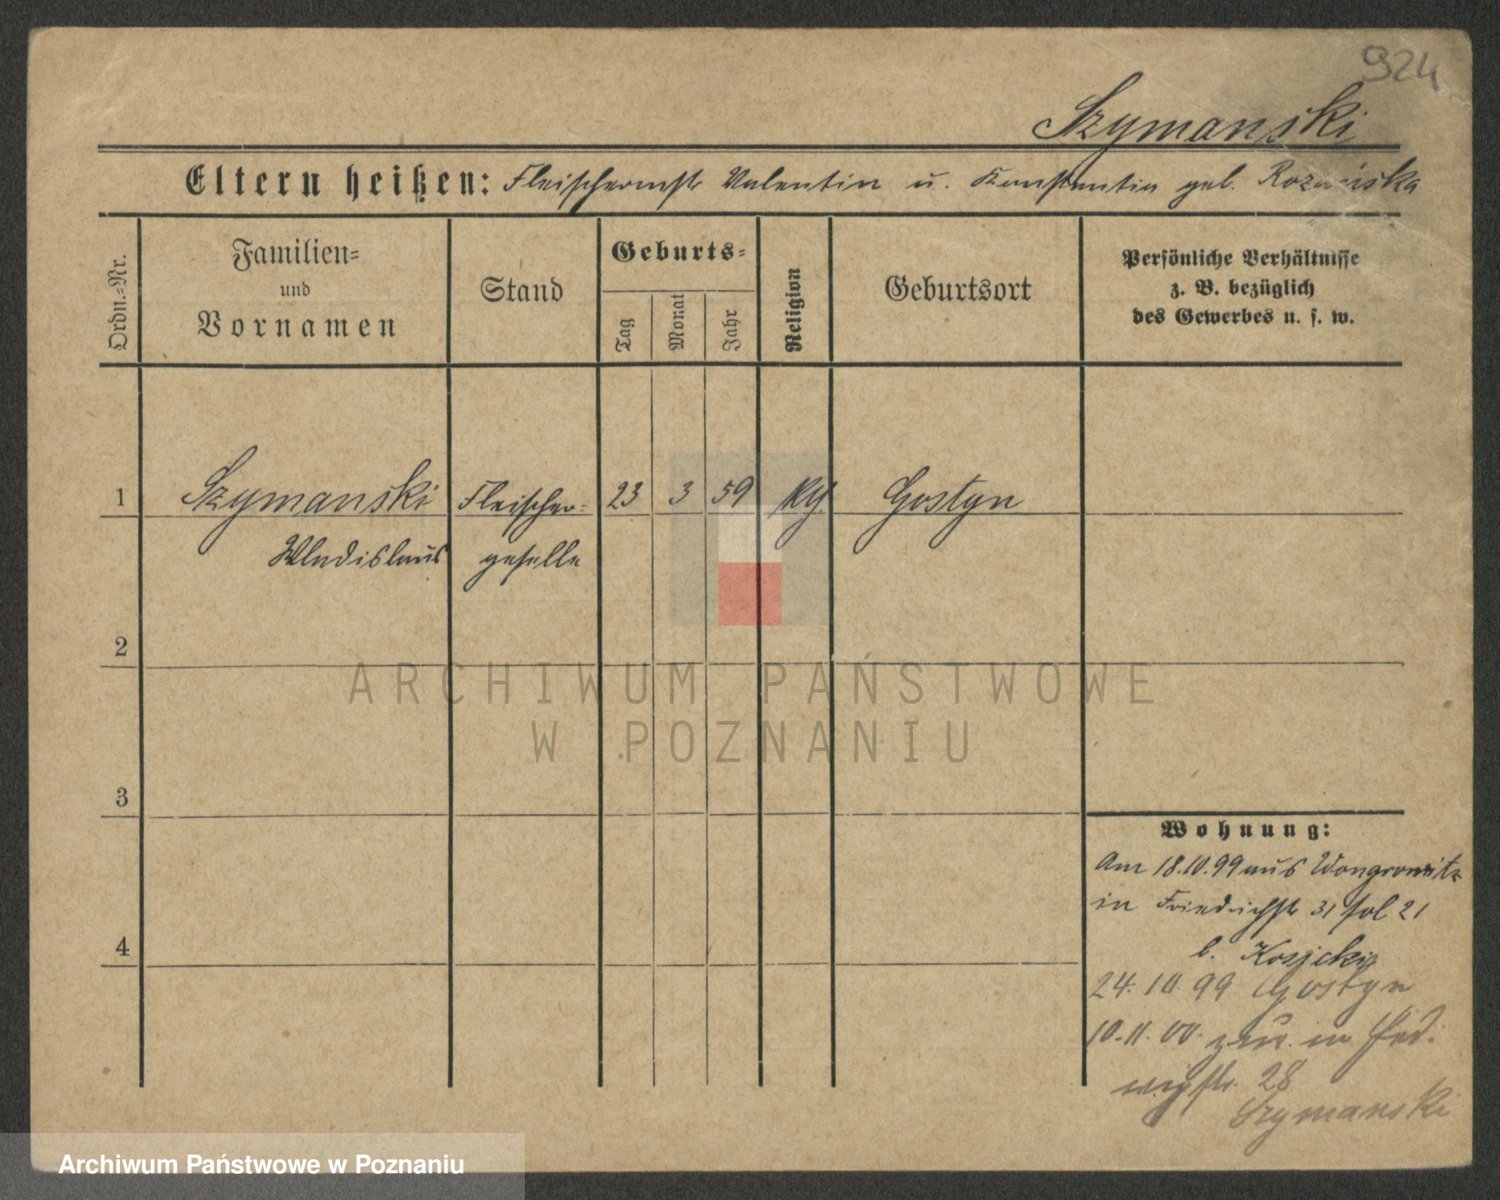 924
Szymanski
Eltern heißen: Fleischermstr Valentin u. Konstantia geb. Rozaińska
Ordn.-Nr.
Familien-
und
Vornamen
Stand
Geburts-
Tag
Monat
Jahr
Religion
Geburtsort
Persönliche Verhältnisse
z. B. bezüglich
des Gewerbes u. s. w.
1 Szymanski Fleischer- 23 3 59 Gostyn
Wladislaus geselle
2
3
4
ARCHIWUM PAŃSTWOWE
W POZNANIU
Wohnung:
Am 18.10.99 aus Wongrowitz
in Friedrichstr 31 fol 21
b. Kosicki
24.10.99 Gostyn
10.11.00. zur. in Hed-
wigstr. 28
Szymanski
Archiwum Państwowe w Poznaniu